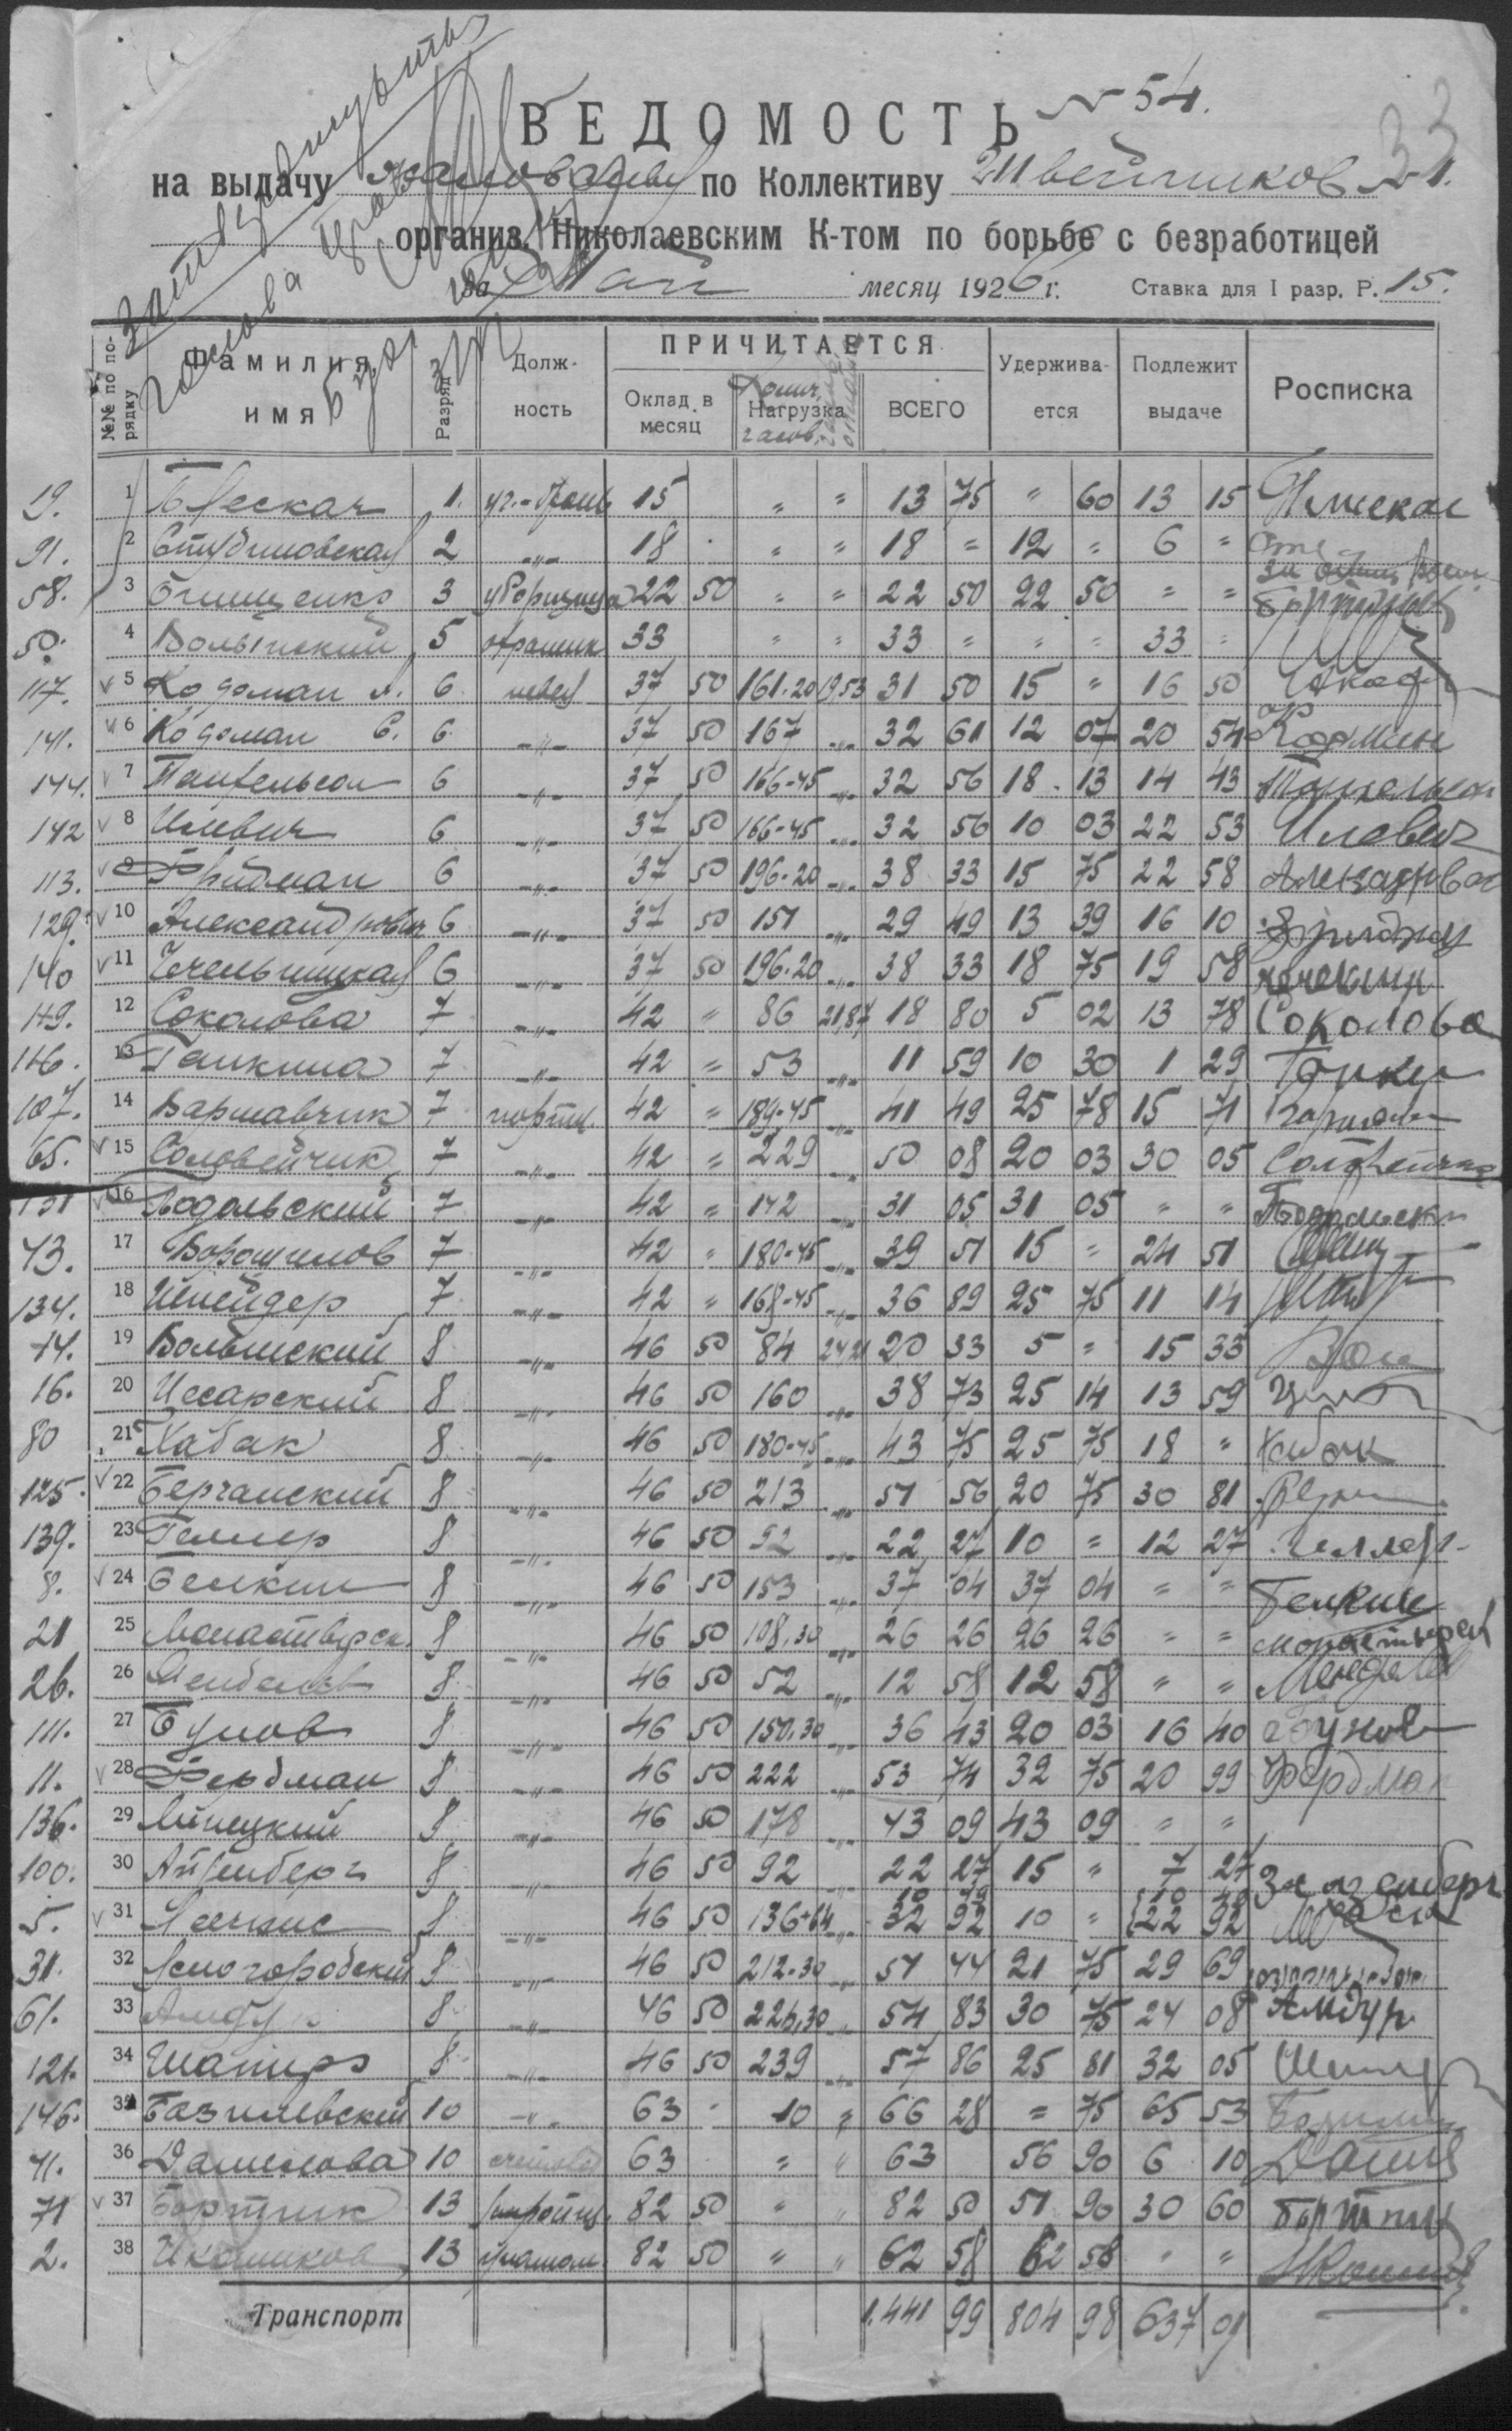 № 54.
33
ВЕДОМОСТЬ
на выдачу жалованья по Коллективу Швейников № 1.
организ. Николаевским К-том по борьбе с безработицей
за Май месяц 1926 г. Ставка для I разр. Р. 15.
№№ по порядку Фамилия имя Разряд Должность ПРИЧИТАЕТСЯ Оклад в месяц Нагрузка часов ВСЕГО Удерживается Подлежит выдаче Росписка
19. 1 1. 15 " " 13 75 " 60 13 15
91. 2 Студиновская 2 -"- 18 " " 18 = 12 = 6 =
58. 3 Онищенко 3 уборщица 22 50 " " 22 50 22 50 = =
50. 4 Волынский 5 33 " " 33 = " = 33 =
117. v 5 Кодоман А. 6 швея 37 50 161.20 19,53 31 50 15 " 16 50
141. v 6 Кодоман С. 6 -"- 37 50 167 -"- 32 61 12 07 20 54
144. v 7 6 -"- 37 50 166-45 -"- 32 56 18 13 14 43
142 v 8 Илевич 6 -"- 37 50 166-45 -"- 32 56 10 03 22 53 Илевич
113. v 9 Фридман 6 -"- 37 50 196-20 -"- 38 33 15 75 22 58
129. v 10 Александрович 6 -"- 37 50 151 -"- 29 49 13 39 16 10
140 v 11 Чечельницкая 6 -"- 37 50 196.20 -"- 38 33 18 75 19 58
149. 12 Соколова 7 -"- 42 " 86 21,87 18 80 5 02 13 78 Соколова
116. 13 Ганкина 7 -"- 42 = 53 -"- 11 59 10 30 1 29
107. 14 Варшавчик 7 портн. 42 = 189-45 -"- 41 49 25 78 15 71
65. v 15 Соловейчик 7 -"- 42 = 229 50 08 20 03 30 05 Соловейчик
131 v 16 Подольский 7 -"- 42 = 142 -"- 31 05 31 05 " " Подольски
43. 17 Ворошилов 7 -"- 42 " 180-45 -"- 39 51 15 = 24 51
134. 18 Шнейдер 7 -"- 42 " 168-45 -"- 36 89 25 75 11 14
14. 19 Волынский 8 -"- 46 50 84 24 21 20 33 5 = 15 33
16. 20 Цесарский 8 -"- 46 50 160 -"- 38 73 25 14 13 59
80 21 Хабак 8 -"- 46 50 180-45 -"- 43 75 25 75 18 " Хабак
125. v 22 Берганский 8 -"- 46 50 213 -"- 51 56 20 75 30 81
139. 23 Геллер 8 -"- 46 50 92 -"- 22 27 10 = 12 27 Геллер
8. v 24 Белкин 8 -"- 46 50 153 -"- 37 04 37 04 = = Белкин
21 25 Монастырск. 8 -"- 46 50 108,30 -"- 26 26 26 26 = =
26. 26 Менделев 8 -"- 46 50 52 -"- 12 58 12 58 " "
111. 27 Бунов 8 -"- 46 50 150.30 -"- 36 43 20 03 16 40 Бунов
11. v 28 Фердман 8 -"- 46 50 222 -"- 53 74 32 75 20 99 Фердман
136. 29 Линецкий 8 -"- 46 50 178 -"- 43 09 43 09 = =
100. 30 Айзенберг 8 -"- 46 50 92 22 27 15 " 7 27
5. v 31 8 -"- 46 50 136+64 -"- 32 92 10 " 22 92
31. 32 Ясногородский 8 -"- 46 50 212-30 -"- 51 44 21 75 29 69
61. 33 Амдур 8 -"- 46 50 226,30 54 83 30 75 24 08 Амдур
121. 34 Шапиро 8 -"- 46 50 239 -"- 57 86 25 81 32 05
146. 35 Базилевский 10 -"- 63 10 = 66 28 = 75 65 53
41. 36 Данилова 10 счетовод 63 = " 63 56 90 6 10
71 v 37 Бортник 13 82 50 " " 82 50 51 90 30 60 Бортник
2. 38 13 82 50 " " 62 58 62 58 " "
Транспорт 1.441 99 804 98 637 01